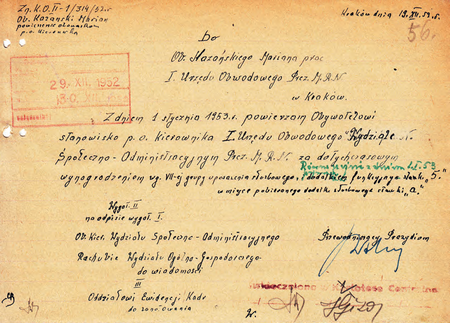 Zn. K.O.II-1/314/52.r.
Kraków dnia 19.XII.52.r.
Ob. Kozański Marian
56.
powierzenie obowiązków
p.o. Kierownika
Do
Ob. Kozańskiego Mariana prac
I. Urzędu Obwodowego Prez. M.R.N.
w Kraków.
29. XII. 1952
Z dniem 1 stycznia 1953 r. powierzam Obywatelowi
stanowisko p.o. Kierownika I. Urzędu Obwodowego Wydziale
Społeczno-Administracyjnym Prez. M.R.N. za dotychczasowym
wynagrodzeniem wg. VII-ej grupy uposażenia służbowego, i dodatkiem funkcyjnym stawki „5."
w miejsce pobieranego dodatku służbowego stawki „a."
Wygot. II
na odpisie wygot. I.
Ob. Kier. Wydziału Społeczno-Administracyjnego
Przewodniczący Prezydium
Rachuba Wydziału Ogólno-Gospodarczego
do wiadomości
III
Oddziałowi Ewidencji Kadr
do zanotowania